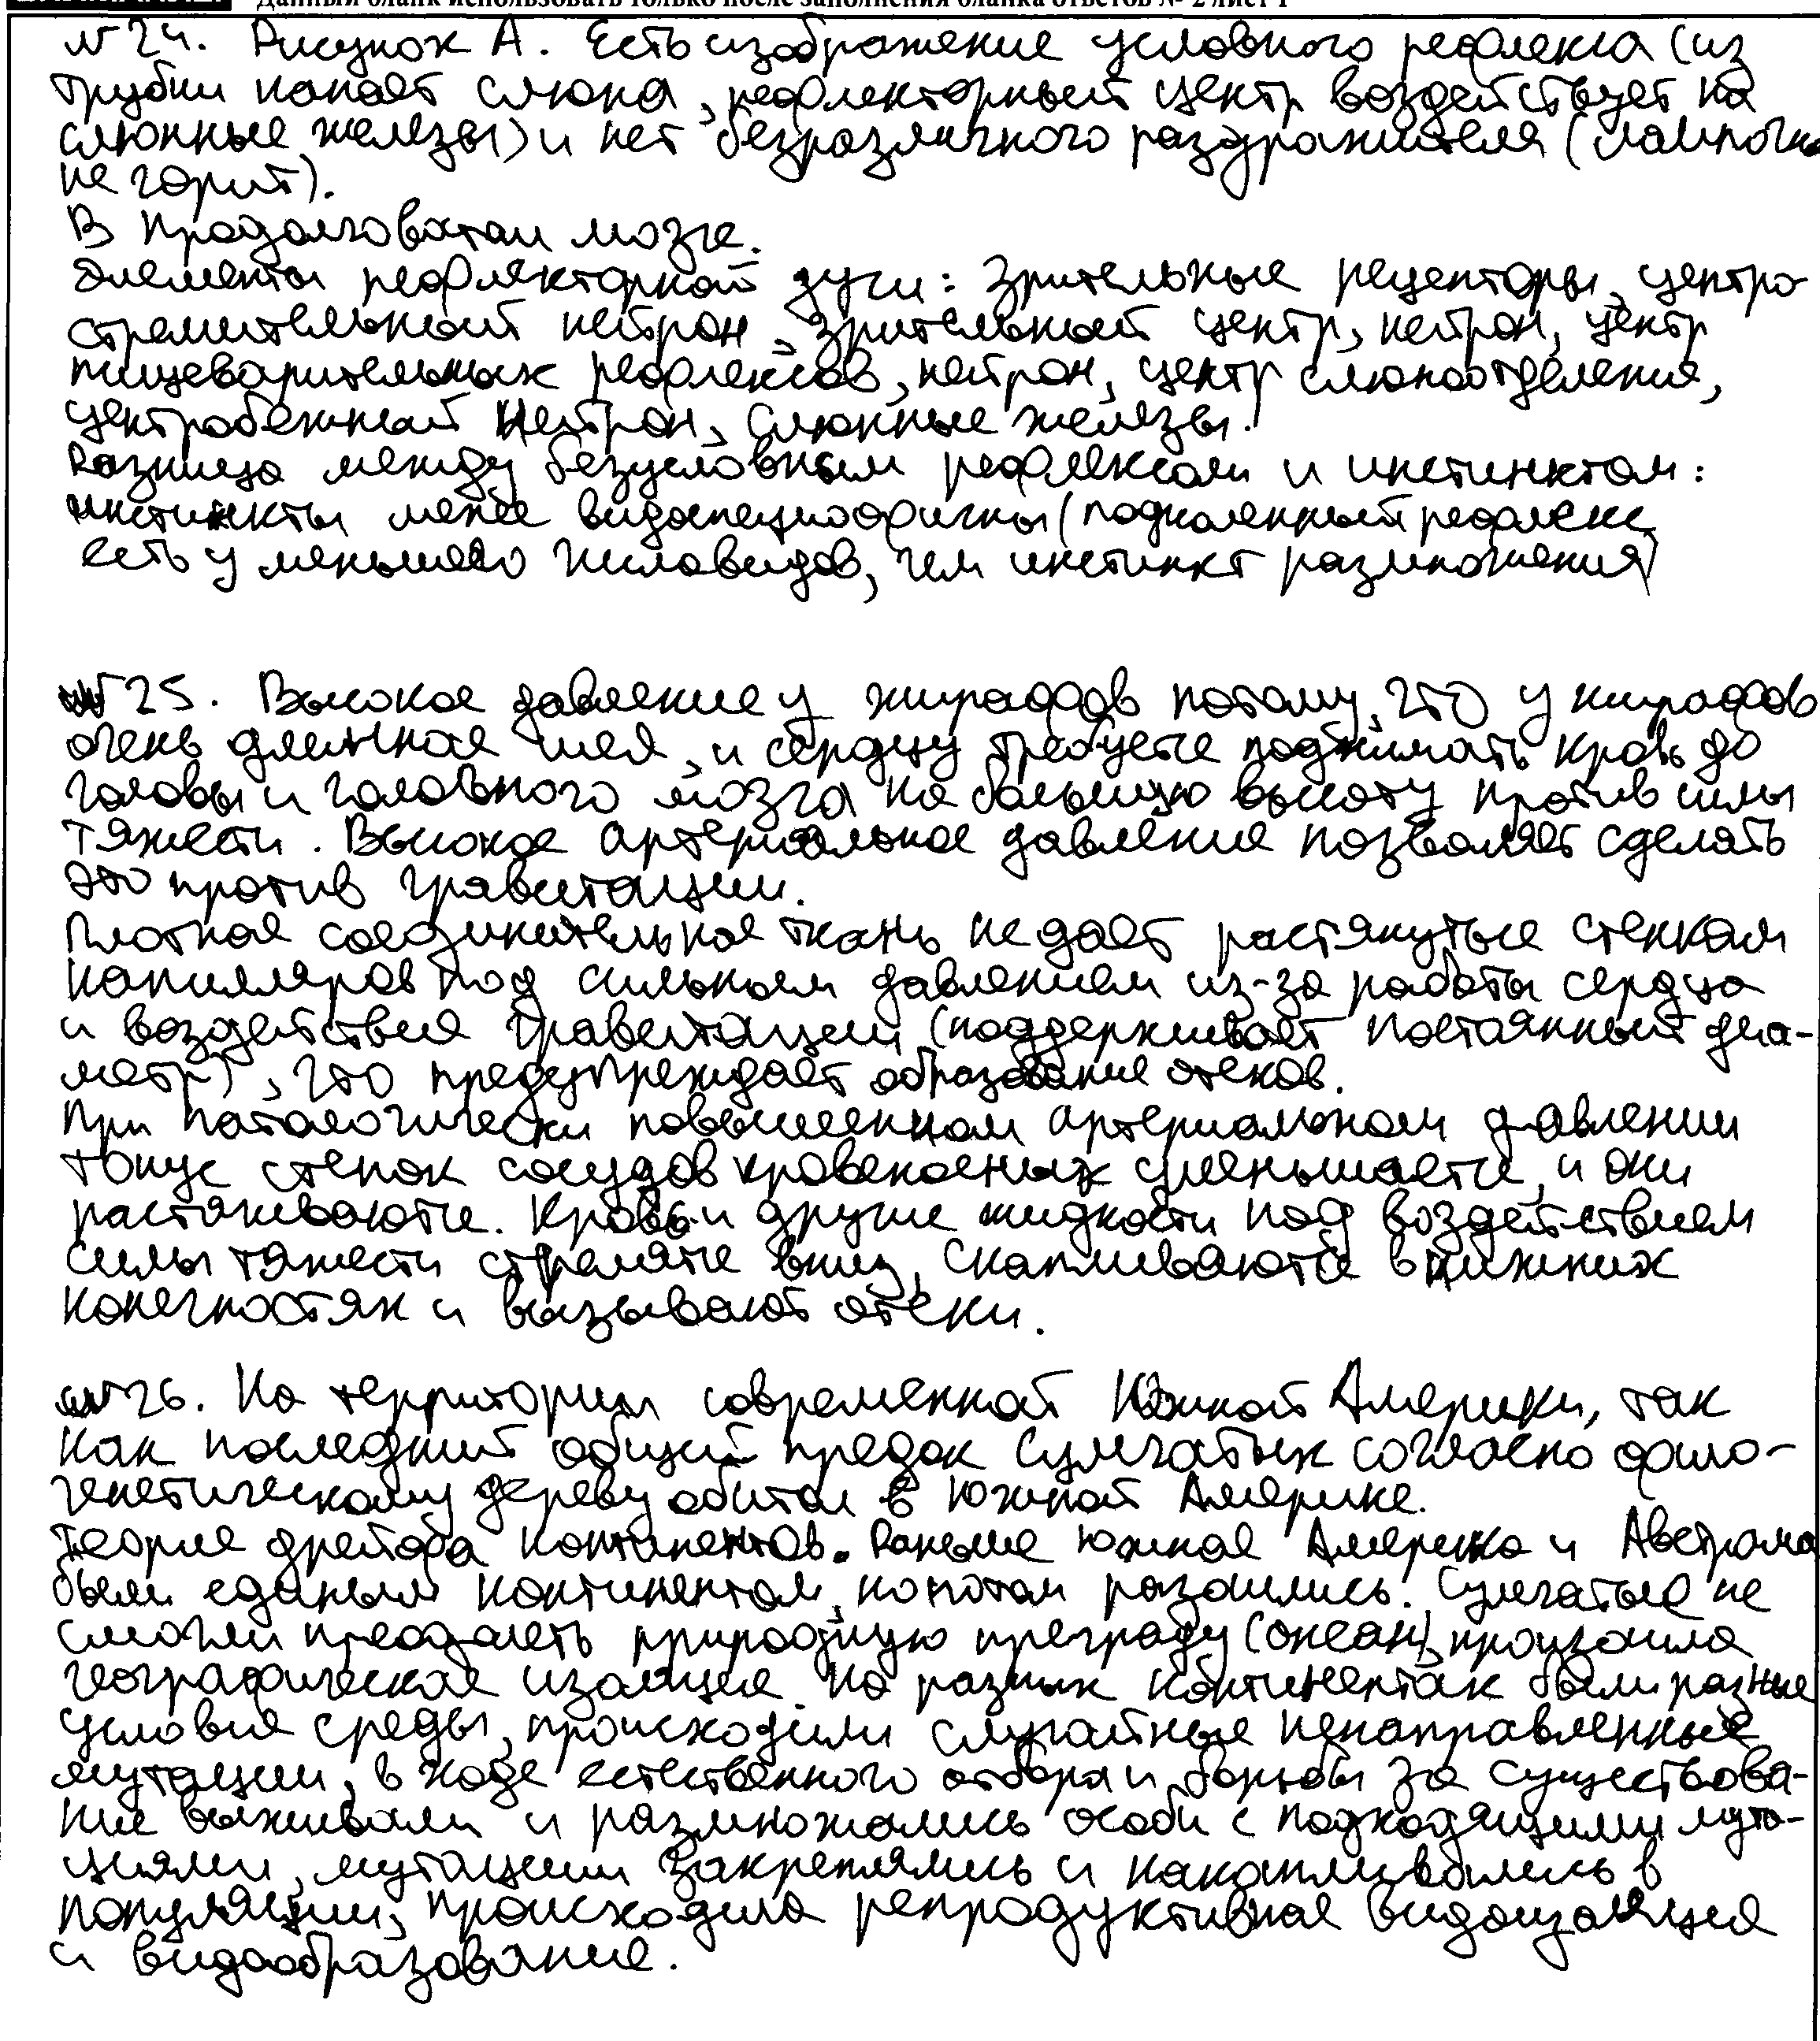 Данный бланк использовать только после заполнения бланка ответов № 2 лист 1
№ 24. Рисунок А. Есть изображение условного рефлекса (из
трубки капает слюна, рефлекторный центр воздействует на
слюнные железы) и нет безразличного раздражителя (лампочка
не горит).
В продолговатом мозге.
Элементы рефлекторной дуги: зрительные рецепторы, центро-
стремительный нейрон, зрительный центр, нейрон, центр
пищеварительных рефлексов, нейрон, центр слюноотделения,
центробежный нейрон, слюнные железы.
Разница между безусловным рефлексом и инстинктом:
инстинкты менее видоспецифичны (подколенный рефлекс
есть у меньшего числа видов, чем инстинкт размножения)
№ 25. Высокое давление у жирафов потому, что у жирафов
очень длинная шея, и сердцу требуется поднимать кровь до
головы и головного мозга на большую высоту против силы
тяжести. Высокое артериальное давление позволяет сделать
это против гравитации.
Плотная соединительная ткань не дает растянуться стенкам
капилляров под сильным давлением из-за работы сердца
и воздействия гравитации (поддерживает постоянный диа-
метр), что предупреждает образование отеков.
При патологически повышенном артериальном давлении
тонус стенок сосудов кровеносных уменьшается, и они
растягиваются. Кровь и другие жидкости под воздействием
силы тяжести стремятся вниз, скапливаются в нижних
конечностях и вызывают отеки.
№ 26. На территории современной Южной Америки, так
как последний общий предок сумчатых согласно фило-
генетическому дереву обитал в Южной Америке.
Теория дрейфа континентов. Раньше Южная Америка и Австралия
были единым континентом, но потом разошлись. Сумчатые не
смогли преодолеть природную преграду (океан), произошла
географическая изоляция. На разных континентах были разные
условия среды, происходили случайные ненаправленные
мутации, в ходе естественного отбора и борьбы за существова-
ние выживали и размножались особи с подходящими мута-
циями, мутации закреплялись и накапливались в
популяции, происходила репродуктивная видоизоляция
и видообразование.